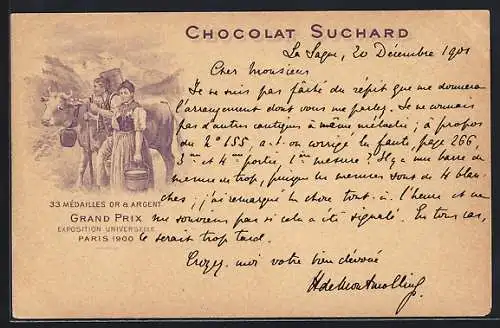 CHOCOLAT SUCHARD
La Sagne, 20 Décembre 1901
Cher Monsieur
Je ne suis pas fâché du répit que me donnera
l'arrangement dont vous me parlez. Je ne connais
pas d'autres cantiques à même mélodie; à propos
du No 155, a-t-on corrigé la faute, page 266,
3me et 4me portée, 1ère mesure? Il y a une barre de
mesure de trop, puisque les mesures sont de 4 blan-
ches; j'ai remarqué la chose tout-à-l'heure et ne
me souviens pas si cela a été signalé. En tous cas,
ce serait trop tard.
Croyez-moi votre bien dévoué
33 MÉDAILLES OR & ARGENT
GRAND PRIX
EXPOSITION UNIVERSELLE
PARIS 1900